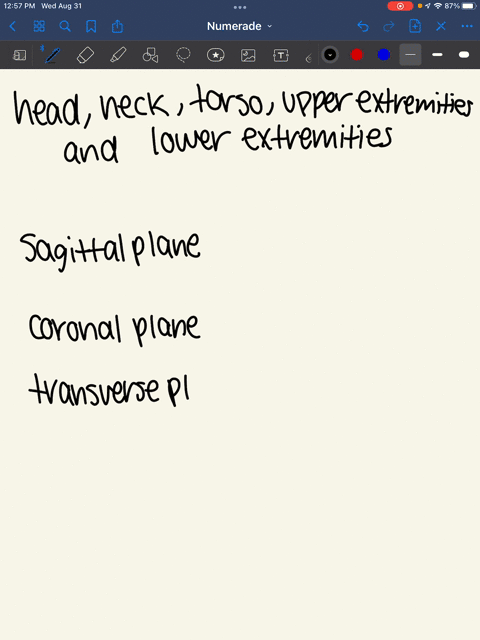 12:57 PM Wed Aug 31
87%
Numerade
head, neck, torso, upper extremities
and lower extremities
Sagittal plane
coronal plane
transverse pl